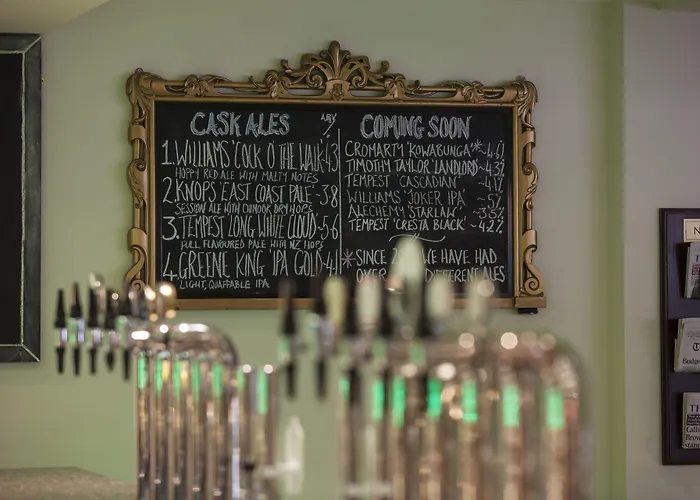 CASK ALES ABV %
1. WILLIAMS 'COCK O' THE WALK' 4.3
HOPPY RED ALE WITH MALTY NOTES
2. KNOPS 'EAST COAST PALE' 3.8
SESSION ALE WITH DUNDOR DRY HOPS
3. TEMPEST 'LONG WHITE CLOUD' ~5.6
FULL FLAVOURED PALE WITH NZ HOPS
4. GREENE KING 'IPA GOLD' 4.1
LIGHT, QUAFFABLE IPA
COMING SOON
CROMARTY 'KOWABUNGA'* ~4.6%
TIMOTHY TAYLOR 'LANDLORD' ~4.3%
TEMPEST 'CASCADIAN'
WILLIAMS 'JOKER IPA' ~5%
ALECHEMY 'STARLAW'
TEMPEST 'CRESTA BLACK' ~4.2%
* SINCE WE HAVE HAD
OVER DIFFERENT ALES
N